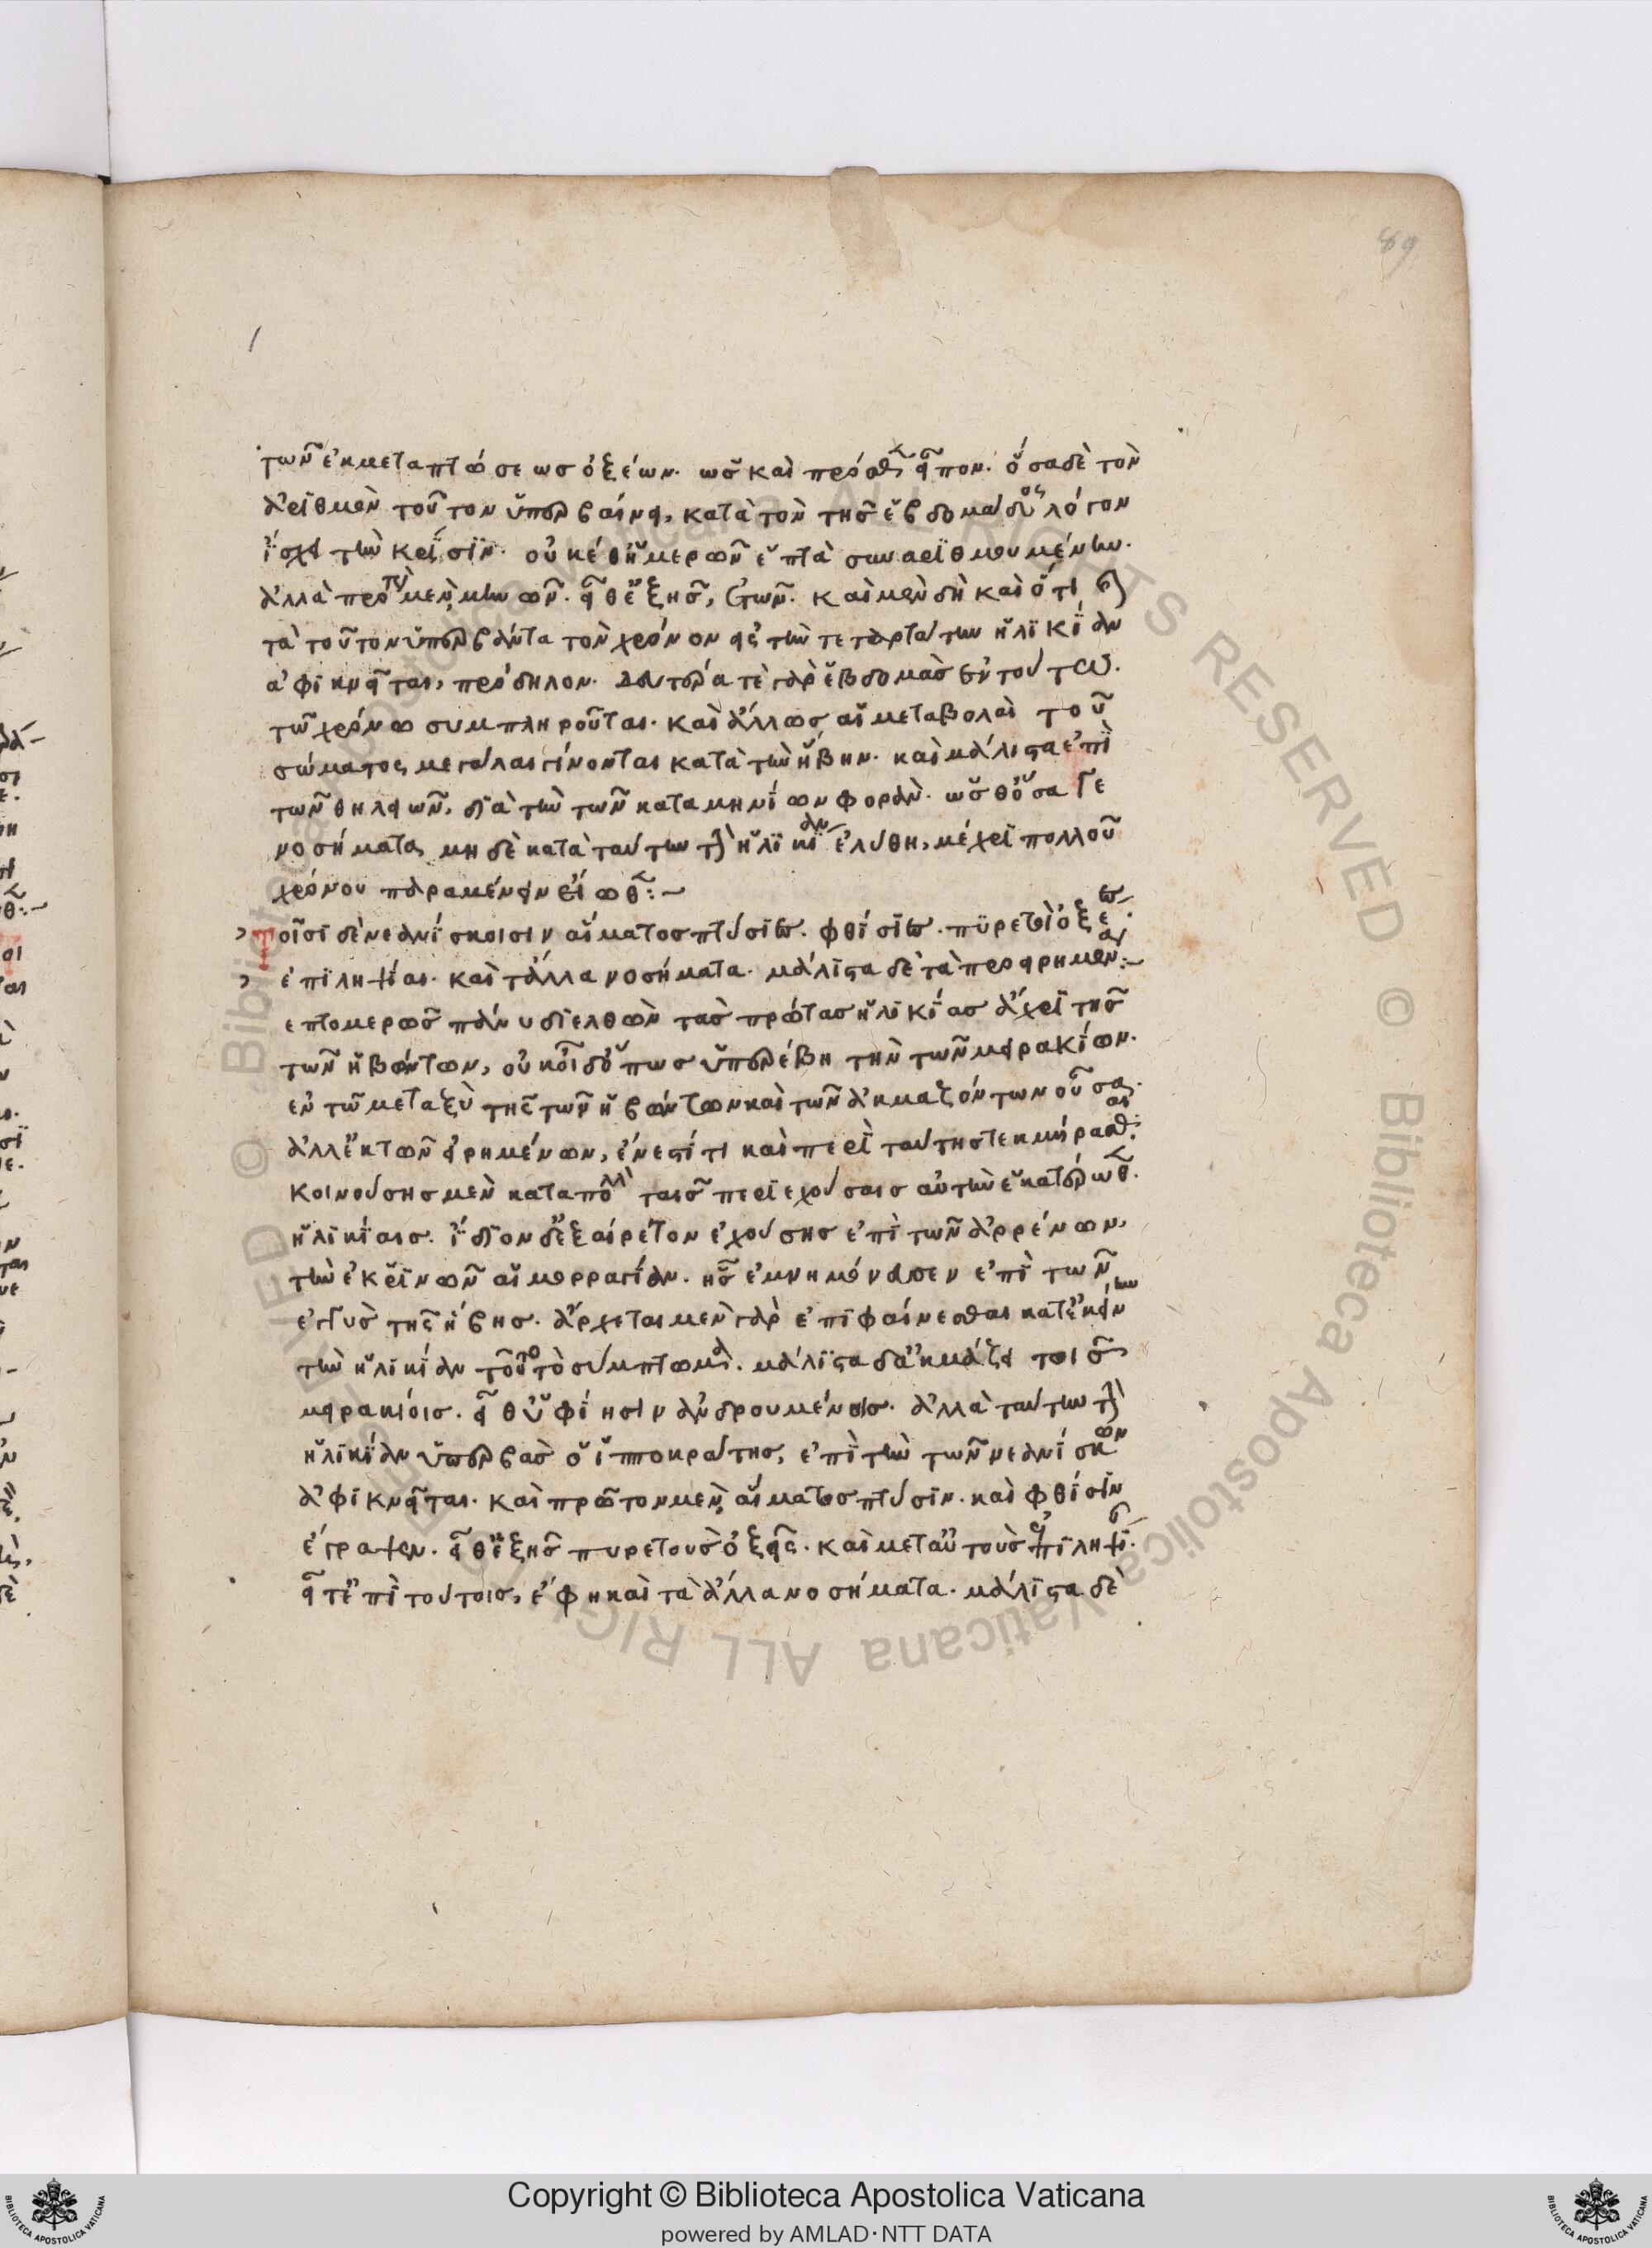 89
τῶν ἐκ μεταπτώσεως ὀξέων. ὡς καὶ πρόσθεν εἶπον. ὅσα δὲ τὸν
ἀριθμὸν τοῦτον ὑπερβαίνει, κατὰ τὸν τῆς ἑβδομάδος λόγον
ἴσχει τὴν κρίσιν. οὐκέθ' ἡμερῶν ἑπτὰ συναριθμουμένων.
ἀλλὰ πρῶτον μὲν μηνῶν. εἶθ' ἑξῆς, ἐτῶν. καὶ μὲν δὴ καὶ ὅτι
τὰ τοῦτον ὑπερβάντα τὸν χρόνον εἰς τὴν τετάρτην ἡλικίαν
ἀφικνεῖται, πρόδηλον. δευτέρα τὲ γὰρ ἑβδομὰς ἐν τούτω.
τῶ χρόνω συμπληροῦται. καὶ ἄλλως αἱ μεταβολαὶ τοῦ
σώματος μεγάλαι γίνονται κατὰ τὴν ἥβην. καὶ μάλιστα ἐπὶ
τῶν θηλειῶν, διὰ τὴν τῶν καταμηνίων φοράν. ὡς θ' ὅσα γε
νοσήματα, μηδὲ κατὰ ταύτην τὴν ἡλικίαν ἐλύθη, μέχρι πολλοῦ
χρόνου παραμένειν εἴωθε:~
Τοῖσι δὲ νεανίσκοισιν αἵματος πτύσιες. φθίσιες. πυρετοὶ ὀξέες.
ἐπιληψίαι. καὶ τἄλλα νοσήματα. μάλιστα δὲ τὰ προειρημένα:~
ἑπτομερῶς πάνυ διελθὼν τὰς πρώτας ἡλικίας ἄχρι τῆς
τῶν ἡβώντων, οὐκ οἶδ' ὅπως ὑπερέβη τὴν τῶν μειρακίων.
ἐν τῶ μεταξὺ τῆς τῶν ἡβώντων καὶ τῶν ἀκμαζόντων οὖσαν.
ἀλλ' ἐκ τῶν εἰρημένων, ἔνεστί τι καὶ περὶ ταύτης τεκμήρασθαι.
κοινούσης μὲν κατὰ πολλὰ ταῖς περιεχούσαις αὐτὴν ἑκατέρωθεν
ἡλικίαις. ἴδιον δ' ἐξαίρετον ἐχούσης ἐπὶ τῶν ἀρρένων,
τὴν ἐκ ῥινῶν αἱμορραγίαν. ἧς ἐμνημόνευσεν ἐπὶ τῶν
ἐγγὺς τῆς ἥβης. ἄρχεται μὲν γὰρ ἐπιφαίνεσθαι κατ' ἐκείνην
τὴν ἡλικίαν τοῦτο τὸ σύμπτωμα. μάλιστα δ' ἀκμάζει τοῖς
μειρακίοις. εἶθ' ὑφίησιν ἀνδρουμένοις. ἀλλὰ ταύτην τὴν
ἡλικίαν ὑπερβὰς ὁ ἱπποκράτης, ἐπὶ τὴν τῶν νεανίσκων
ἀφικνεῖται. καὶ πρῶτον μὲν, αἵματος πτύσιν. καὶ φθίσιν
ἔγραψεν. εἶθ' ἑξῆς πυρετοὺς ὀξεῖς. καὶ μετ' αὐτοὺς ἐπιληψίας.
εἶτ' ἐπὶ τούτοις, ἔφη καὶ τὰ ἄλλα νοσήματα. μάλιστα δὲ
© Biblioteca Apostolica Vaticana ALL RIGHTS RESERVED © Biblioteca Apostolica Vaticana ALL RIGHTS RESERVED
Copyright © Biblioteca Apostolica Vaticana
powered by AMLAD·NTT DATA
BIBLIOTECA APOSTOLICA VATICANA
BIBLIOTECA APOSTOLICA VATICANA